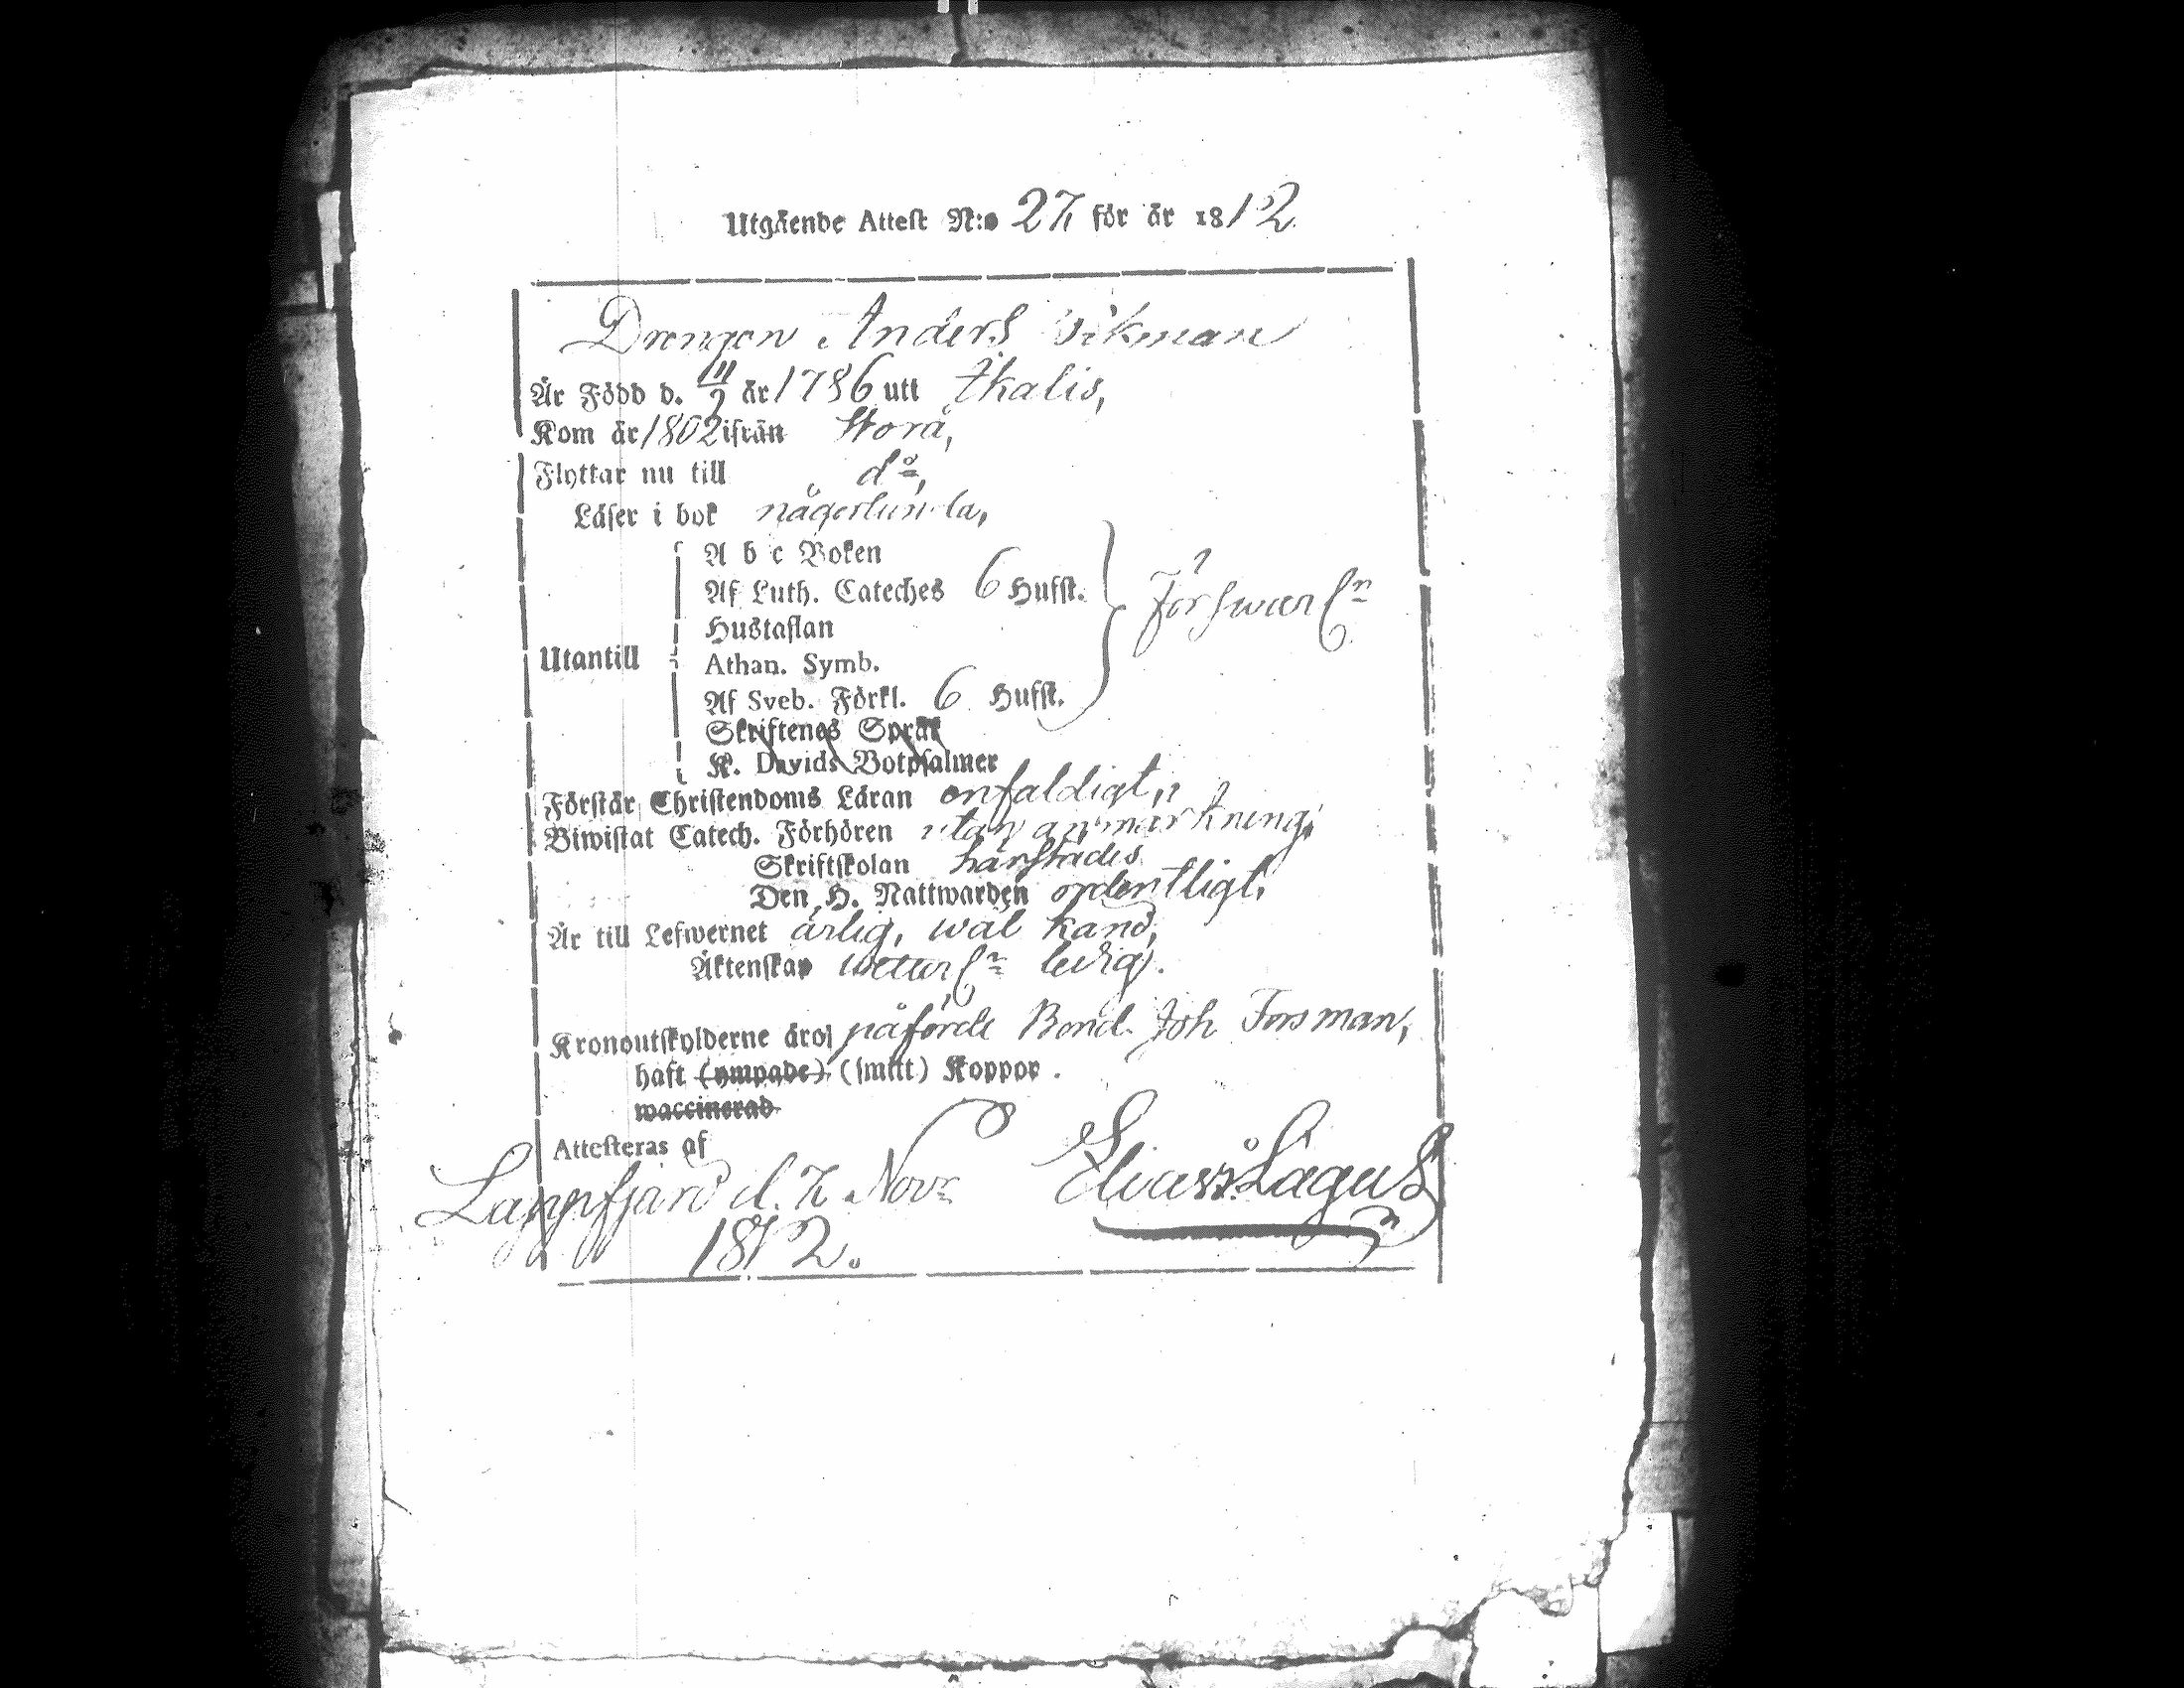 Utgående Attest N:o 27 för år 1812.
Drengen Anders Wikman
Är Född d. 11/2 år 1786 utt Ikalis,
Kom år 1802 ifrån Storå,
Flyttar nu till do,
Läser i bok någorlunda,
A b c Boken
Af Luth. Cateches 6 Hufst.
Hustaflan
Utantill
Athan. Symb.
Af Sveb. Förkl. 6 Hufst.
Förswarln
Skriftenes Språk
K. Davids Botpsalmer
Förstår Christendoms Läran enfaldigt,
Biwistat Catech. Förhören utan anmärkning,
Skriftskolan härstädes
Den H. Nattwarden ordentligt,
Är till Lefwernet ärlig, wäl känd,
Äktenskap ledig.
Kronoutskylderne äro påförde Bond. Joh Forsman,
haft (ympade) (smitt) Koppor.
waccinerad
Attesteras af
Lappfjärd d. 7 Novr Elias Lagus
1812.